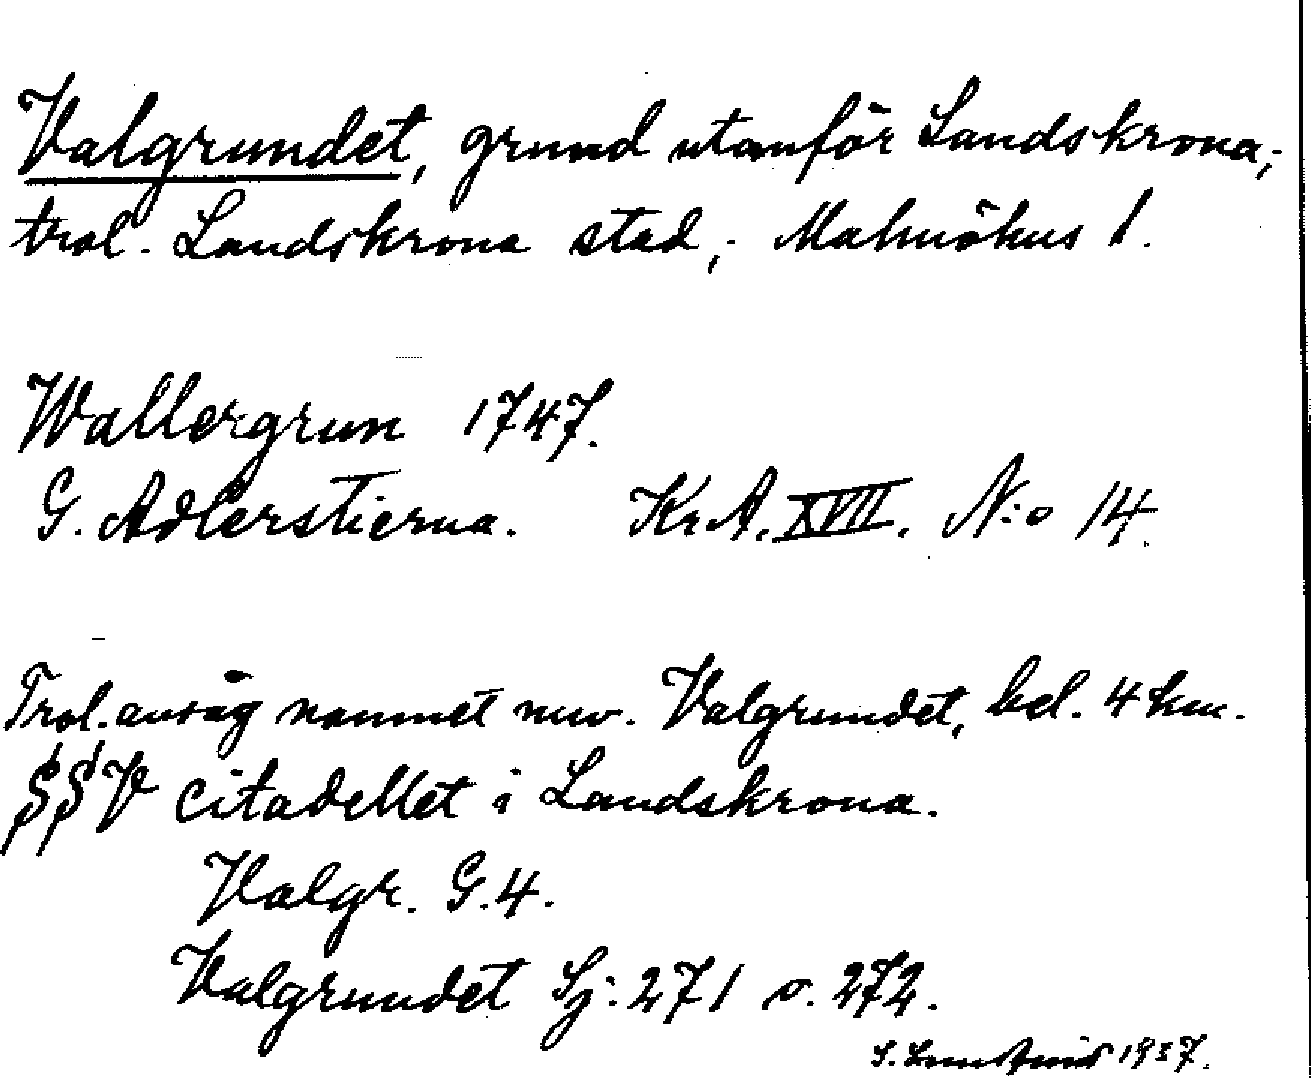 Valgrundet, grund utanför Landskrona,
trol. Landskrona stad, Malmöhus l.
Wallergrun 1747.
G. Adlerstierna. KrA. XVII. N:o 14.
Trol. avsåg namnet nuv. Valgrundet, bel. 4 km.
SSV citadellet i Landskrona.
Valgr. G.4.
Valgrundet Sj: 271 o. 272.
S. 1937.